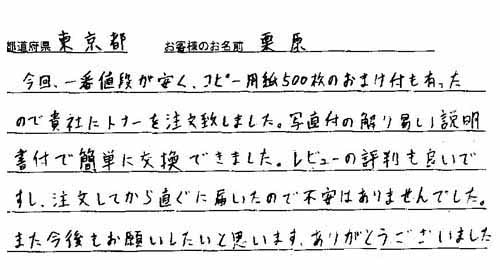 都道府県 東京都 お客様のお名前 栗原
今回、一番値段が安く、コピー用紙500枚のおまけ付も有った
ので貴社にトナーを注文致しました。写真付の解り易い説明
書付で簡単に交換できました。レビューの評判も良いで
すし、注文してから直ぐに届いたので不安はありませんでした。
また今後もお願いしたいと思います、ありがとうございました